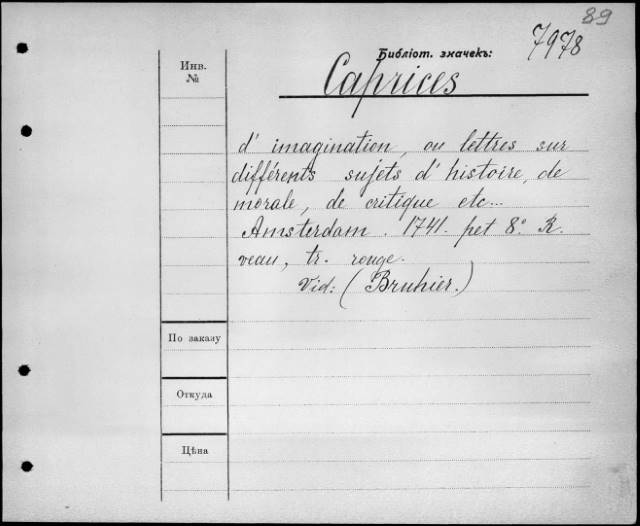 89
7978
Библіот. значекъ:
Инв.
№
Caprices
d' imagination, ou lettres sur
différents sujets d' histoire, de
morale, de critique etc...
Amsterdam. 1741. pet 8.° R.
veau, tr. rouge.
Vid: (Bruhier.)
По заказу
Откуда
Цѣна